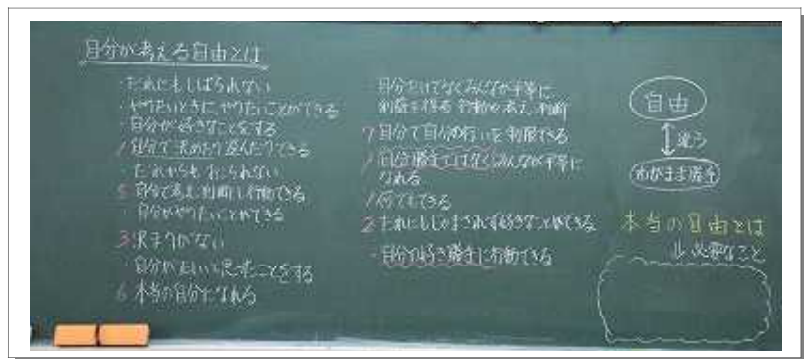 自分が考える自由とは
・だれにもしばられない
・やりたいときに、やりたいことができる
・自分が好きなことをする
自分で決めたり選んだりできる
・だれからもおこられない
5 自分で考え、判断し行動できる
・自分がやりたいことができる
3 決まりがない
・自分が正しいと思ったことをする
6 本当の自分になれる
・自分だけでなくみんなが平等に
利益を得る行動を考え、判断
7 自分で自分の行いを制限できる
自分勝手ではなくみんなが平等に
なれる
何でもできる
2 だれにもじゃまされず好きなことができる
・自分の好き勝手に行動できる
自由
違う
わがまま勝手
本当の自由とは
必要なこと